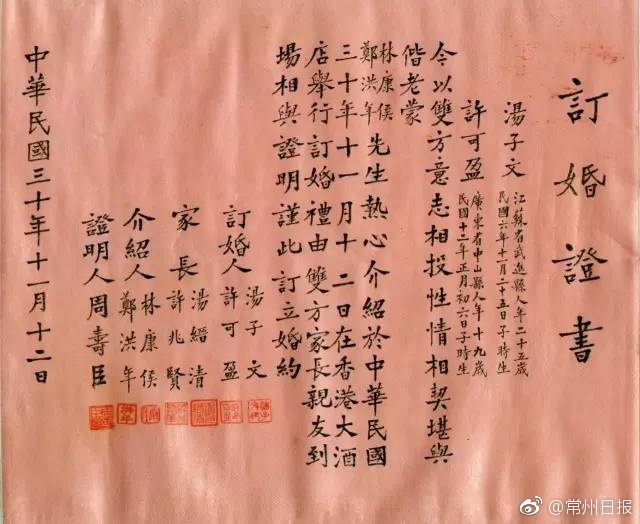 訂婚證書
湯子文
江蘇省武進縣人年二十五歲
民國六年十一月二十五日子時生
許可盈
廣東省中山縣人年十九歲
民國十二年正月初六日子時生
今以雙方意志相投性情相契堪與
偕老蒙
林康侯
鄭洪年
先生熱心介紹於中華民國
三十年十一月十二日在香港大酒
店舉行訂婚禮由雙方家長親友到
場相與證明謹此訂立婚約
訂婚人
湯子文
許可盈
家長
湯縉清
許兆賢
介紹人
林康侯
鄭洪年
證明人周壽臣
中華民國三十年十一月十二日
@常州日报